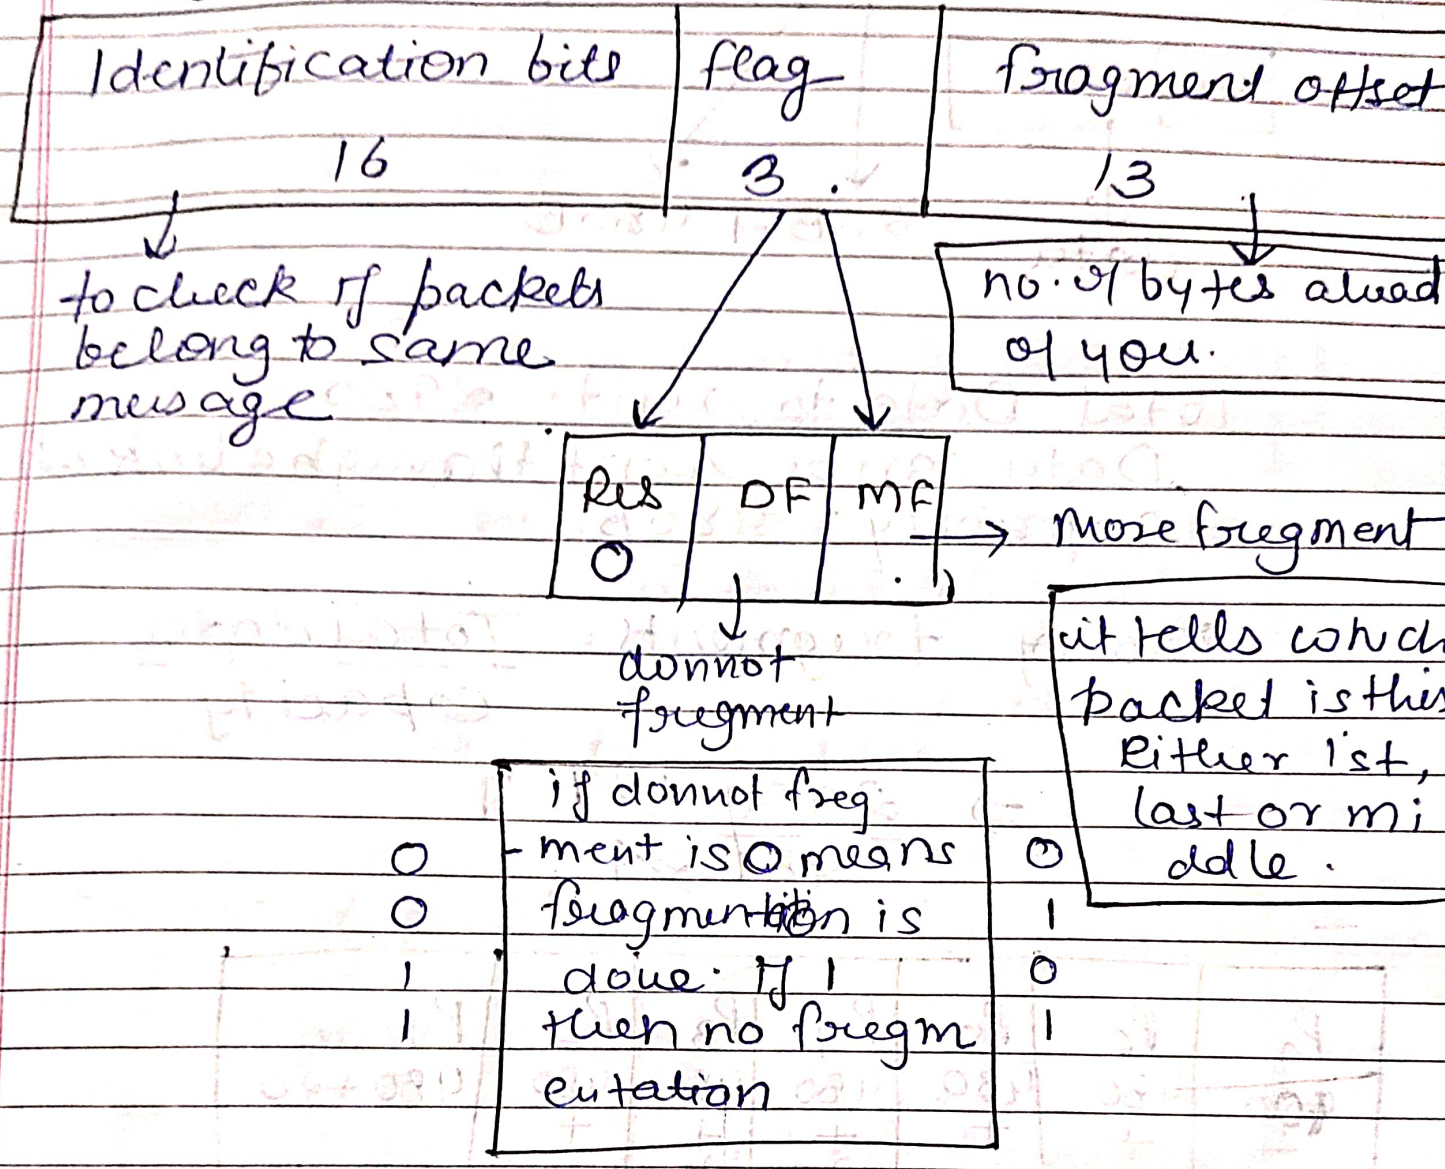 Identification bits flag fragment offset
16 3 . 13
to check if packets
belong to same
message
no. of bytes ahead
of you.
Res DF MF
0
More fregment
donnot
fregment
it tells which
packet is this
Either 1st,
last or mi
ddle.
if donnot freg
0 - ment is 0 means 0
0 fragmentation is 1
1 done. If 1 0
1 then no fregm 1
entation